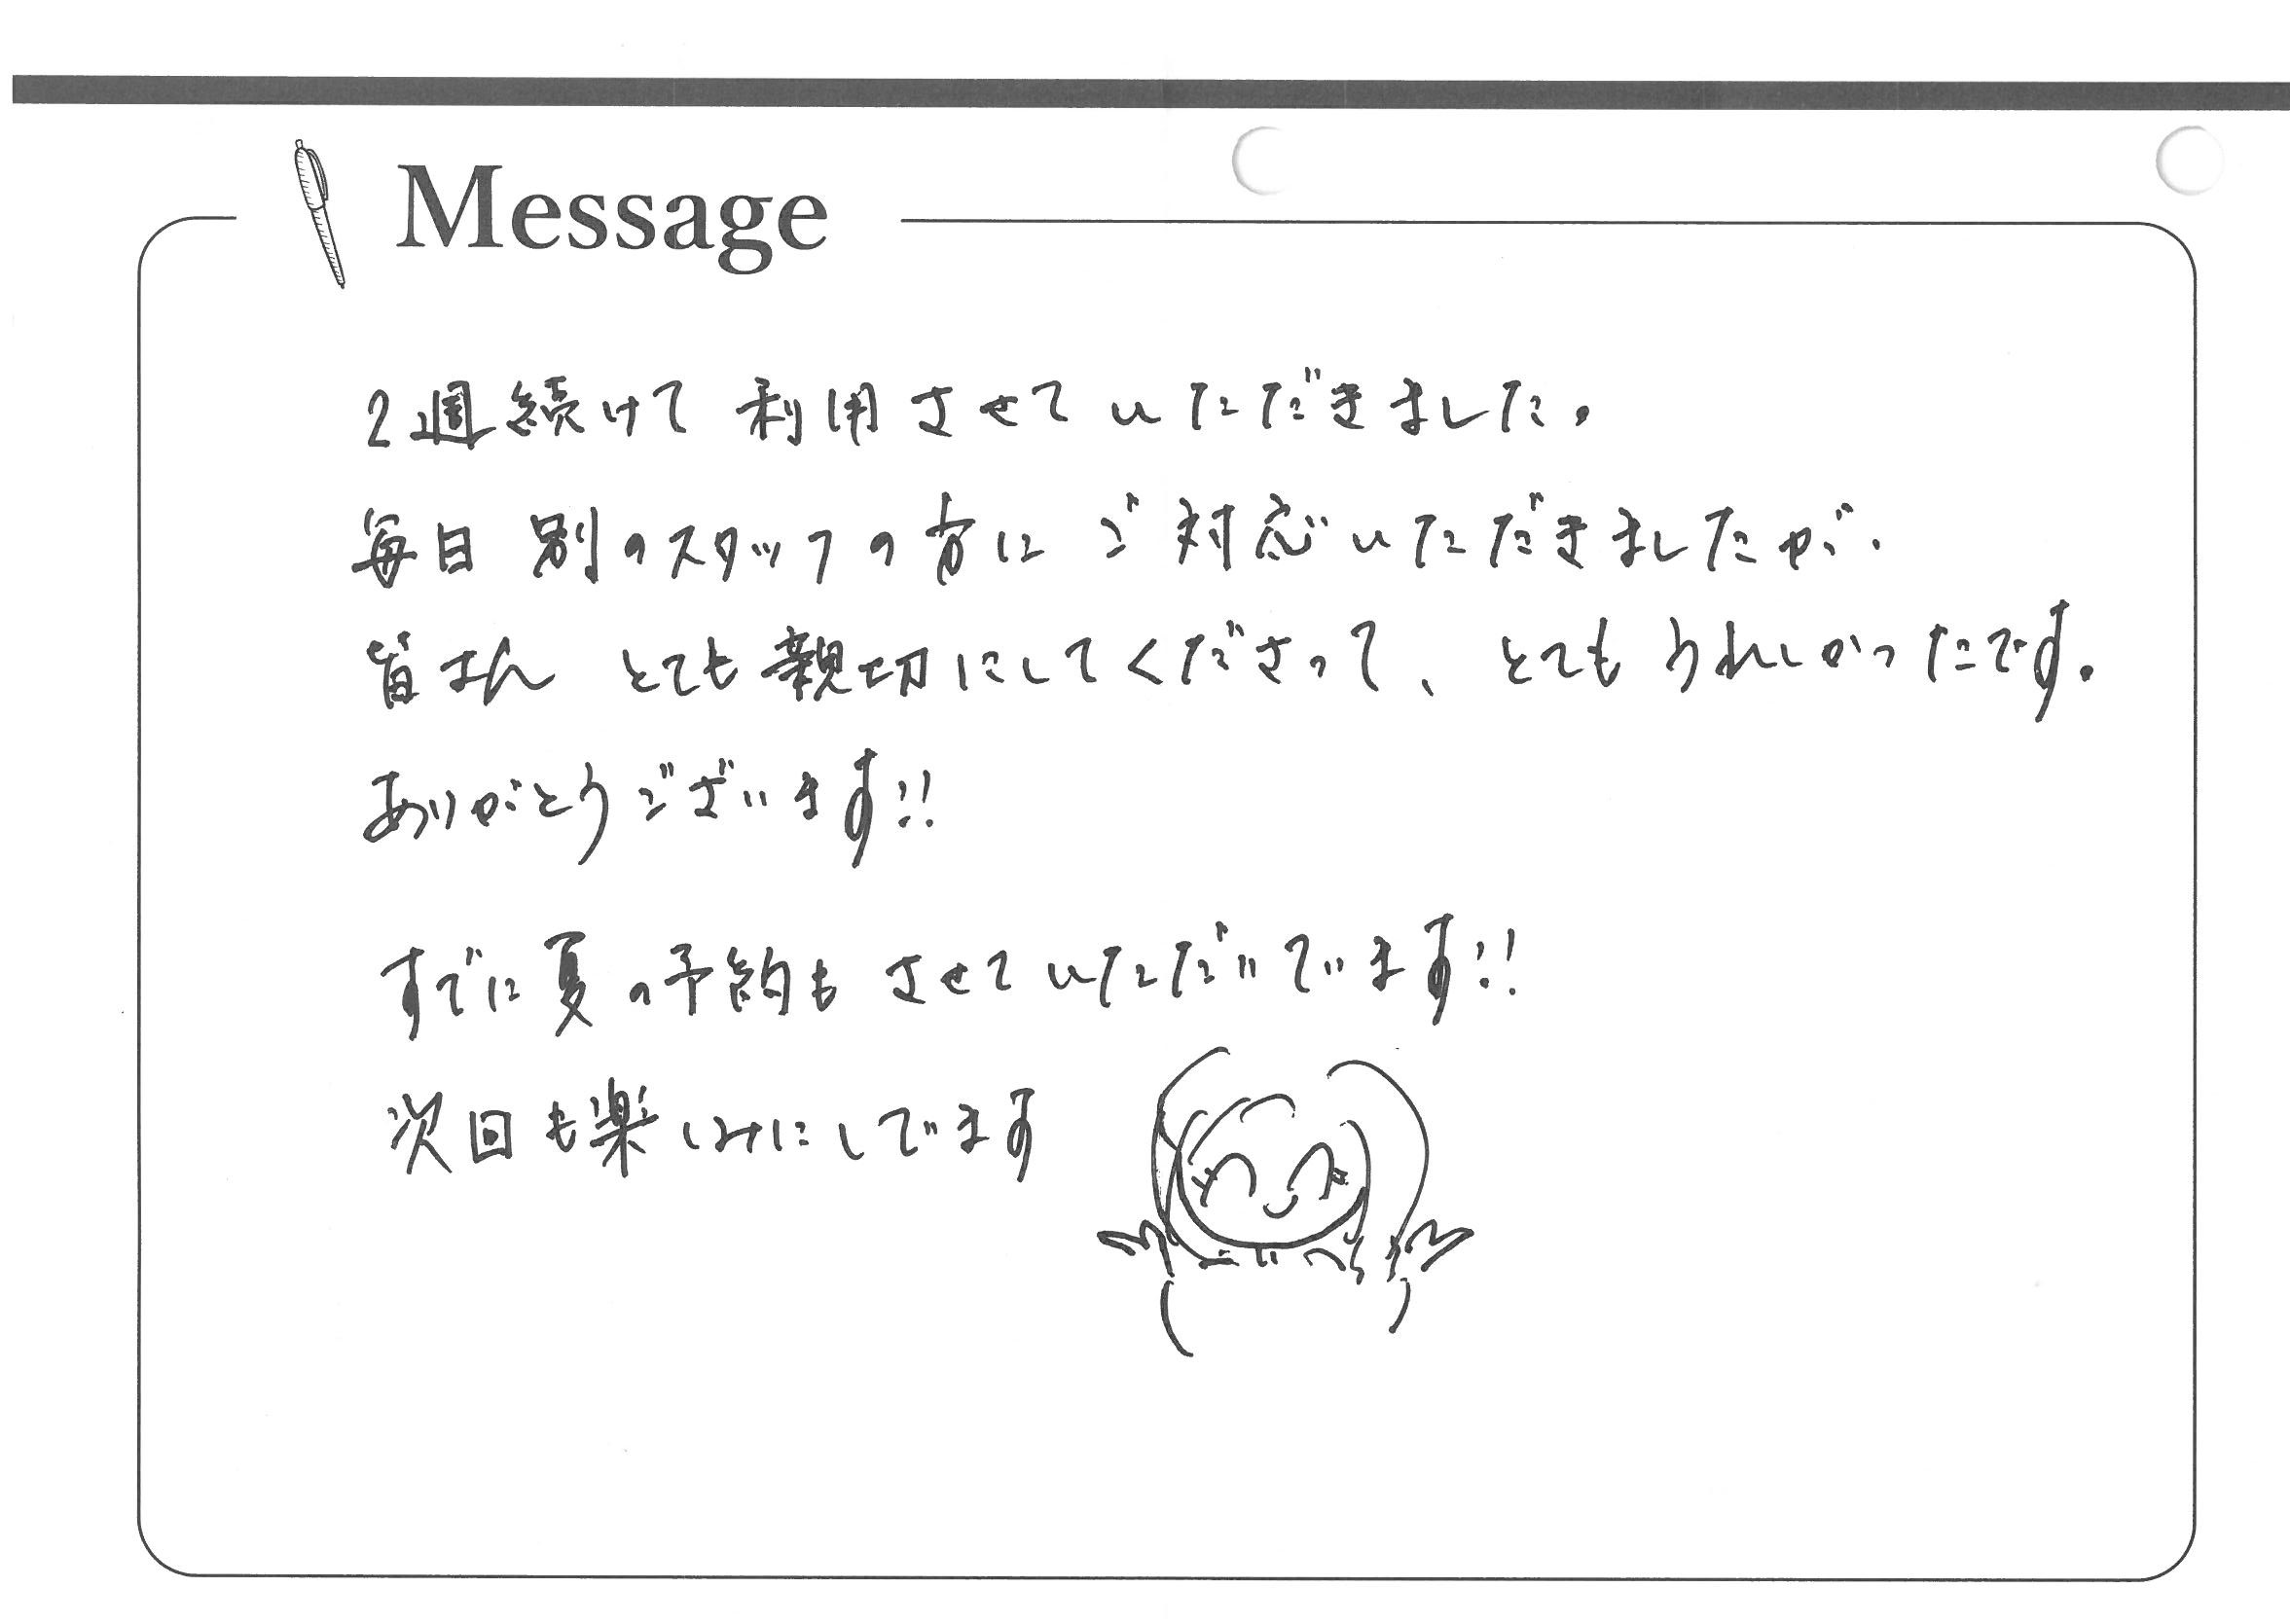 Message
2週続けて利用させていただきました。
毎日別のスタッフの方にご対応いただきましたが、
皆さんとても親切にしてくださって、とてもうれしかったです。
ありがとうございます!!
すでに夏の予約もさせていただいています!!
次回も楽しみにしています